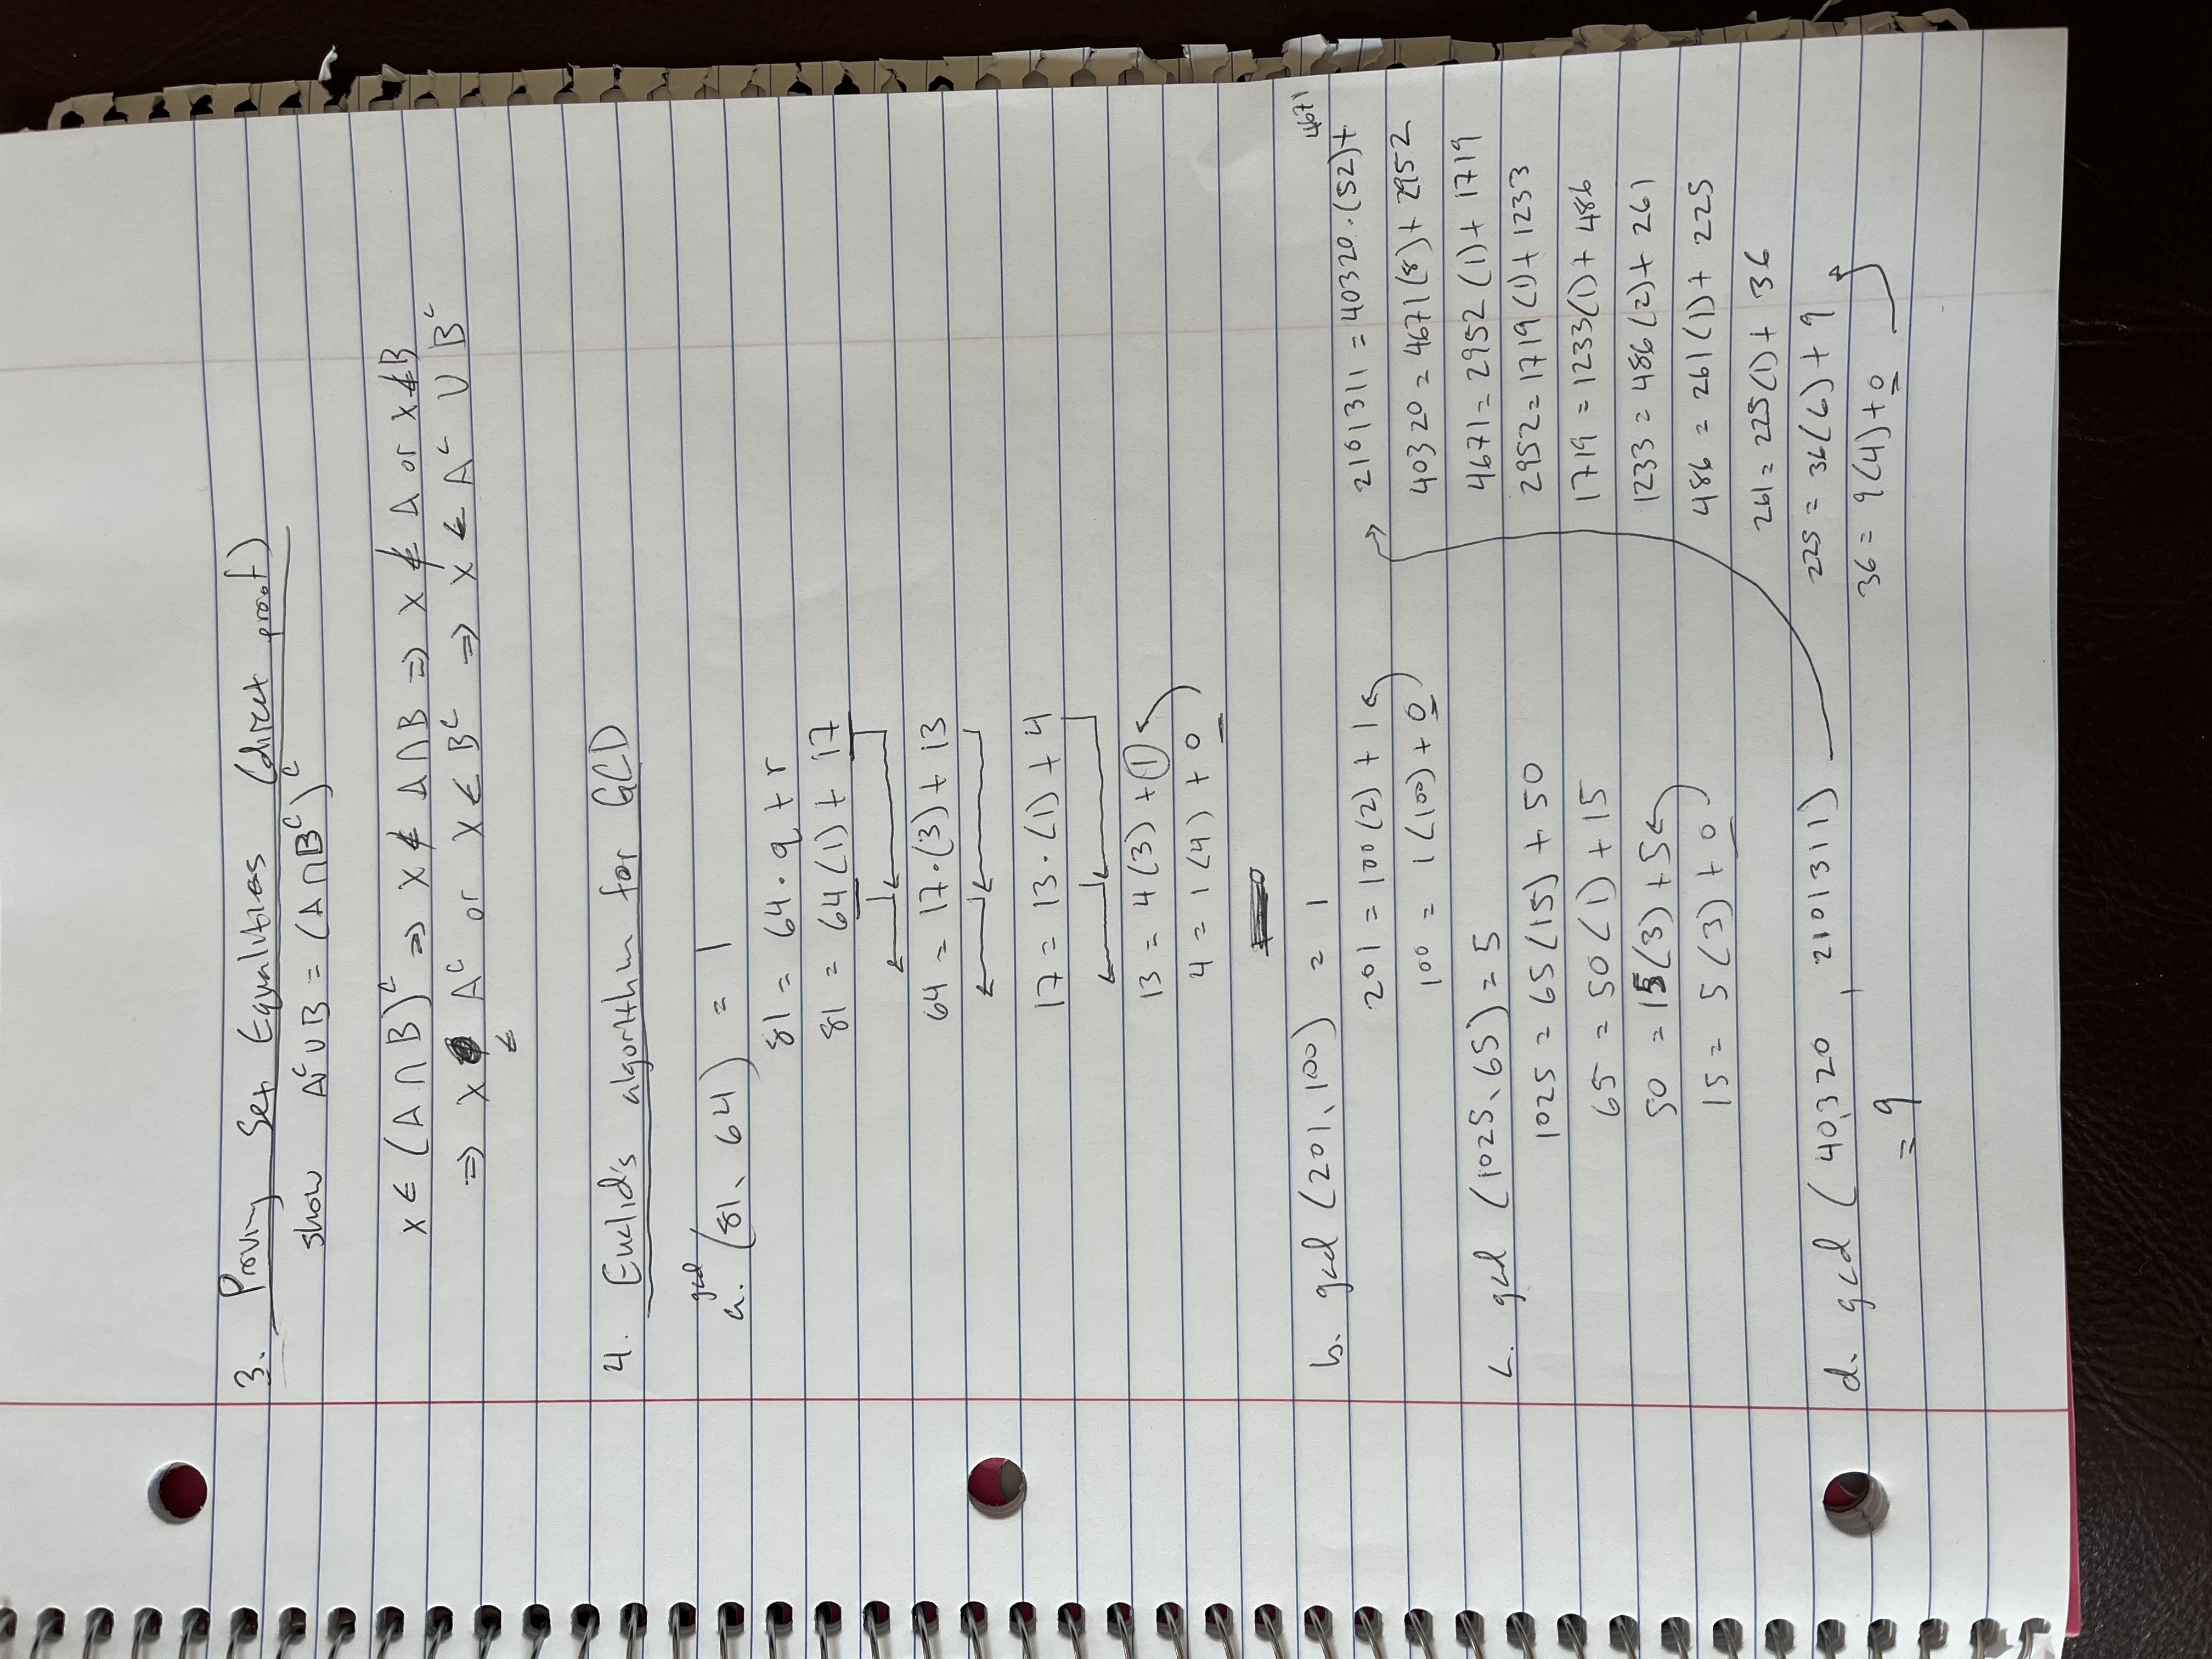 3. Proving Set Equalities (direct proof)
show Aᶜ ∪ B = (A ∩ Bᶜ)ᶜ
x ∈ (A ∩ B)ᶜ ⇒ x ∉ A ∩ B ⇒ x ∉ A or x ∉ B
⇒ x ∈ Aᶜ or x ∈ Bᶜ ⇒ x ∈ Aᶜ ∪ Bᶜ
4. Euclid's algorithm for GCD
a. gcd (81, 64) = 1
81 = 64 · q + r
81 = 64 (1) + 17
64 = 17 · (3) + 13
17 = 13 · (1) + 4
13 = 4 (3) + 1
4 = 1 (4) + 0
b. gcd (201, 100) = 1
201 = 100 (2) + 1
100 = 1 (100) + 0
c. gcd (1025, 65) = 5
1025 = 65 (15) + 50
65 = 50 (1) + 15
50 = 15 (3) + 5
15 = 5 (3) + 0
d. gcd (40,320 , 2101311)
= 9
2101311 = 40320 · (52) + 4671
40320 = 4671 (8) + 2952
4671 = 2952 (1) + 1719
2952 = 1719 (1) + 1233
1719 = 1233 (1) + 486
1233 = 486 (2) + 261
486 = 261 (1) + 225
261 = 225 (1) + 36
225 = 36 (6) + 9
36 = 9 (4) + 0